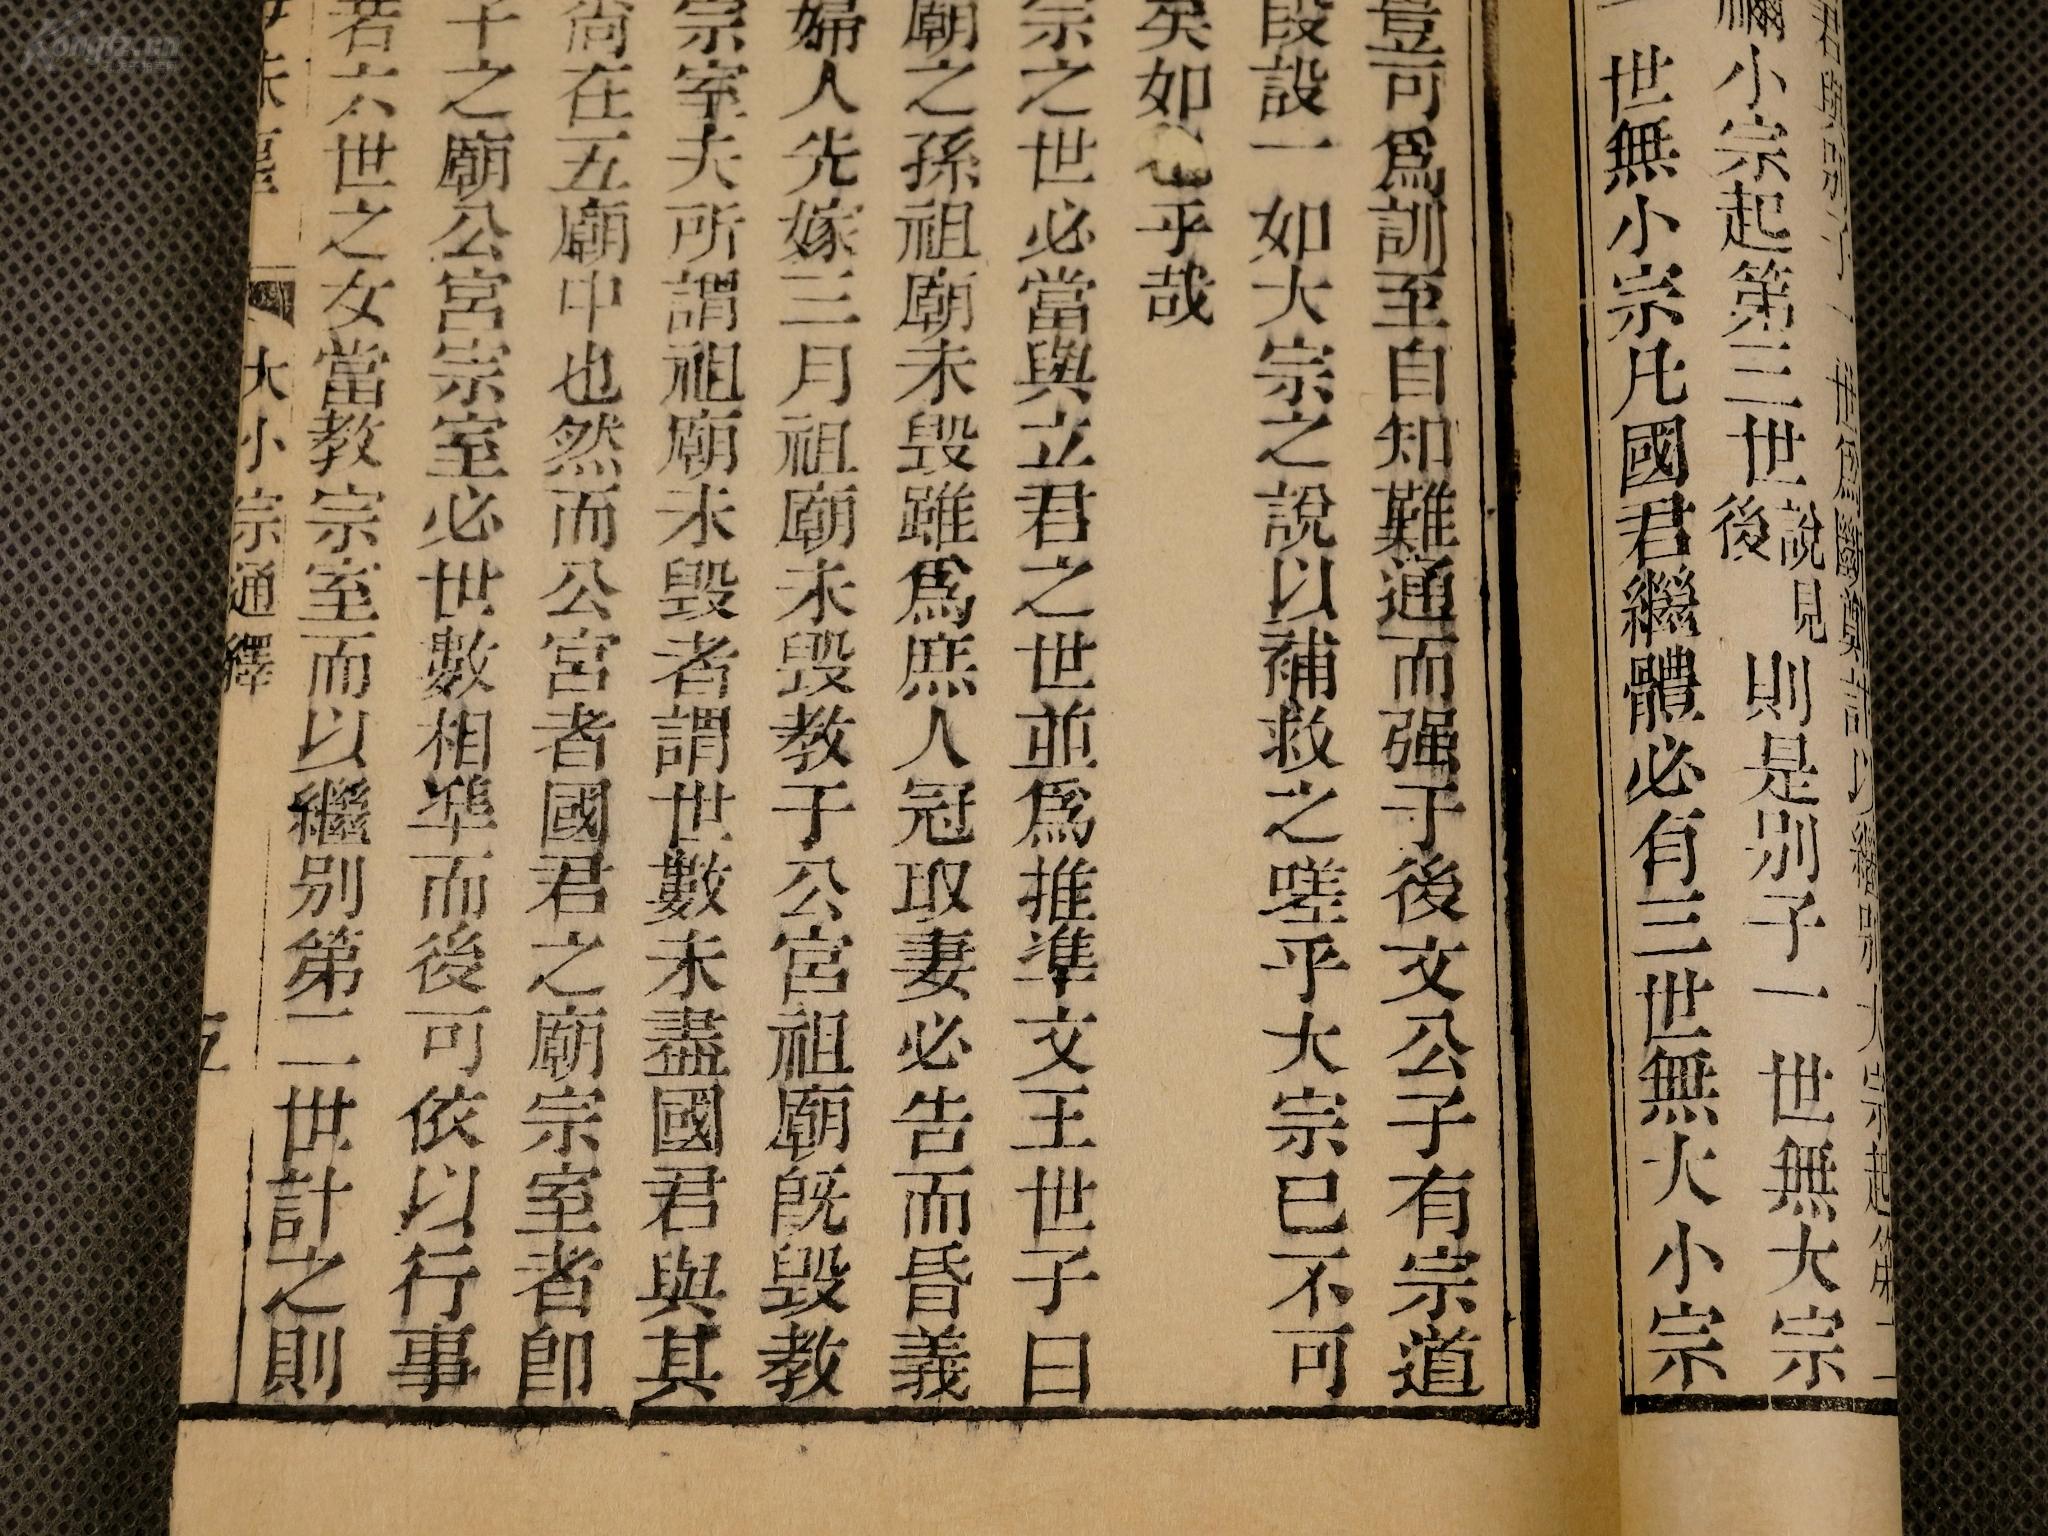 世爲斷鄭計以繼別大宗起第二
禰小宗起第三世說見後則是別子一世無大宗
一世無小宗凡國君繼體必有三世無大小宗
豈可爲訓至自知難通而强于後文公子有宗道
段設一如大宗之說以補救之嗟乎大宗已不可
矣如也乎哉
宗之世必當與立君之世並爲推準文王世子曰
廟之孫祖廟未毀雖爲庶人冠取妻必告而昏義
婦人先嫁三月祖廟未毀教于公宮祖廟旣毀教
宗室夫所謂祖廟未毀者謂世數未盡國君與其
尙在五廟中也然而公宮者國君之廟宗室者卽
子之廟公宮宗室必世數相準而後可依以行事
若六世之女當教宗室而以繼別第二世計之則
大小宗通繹
五